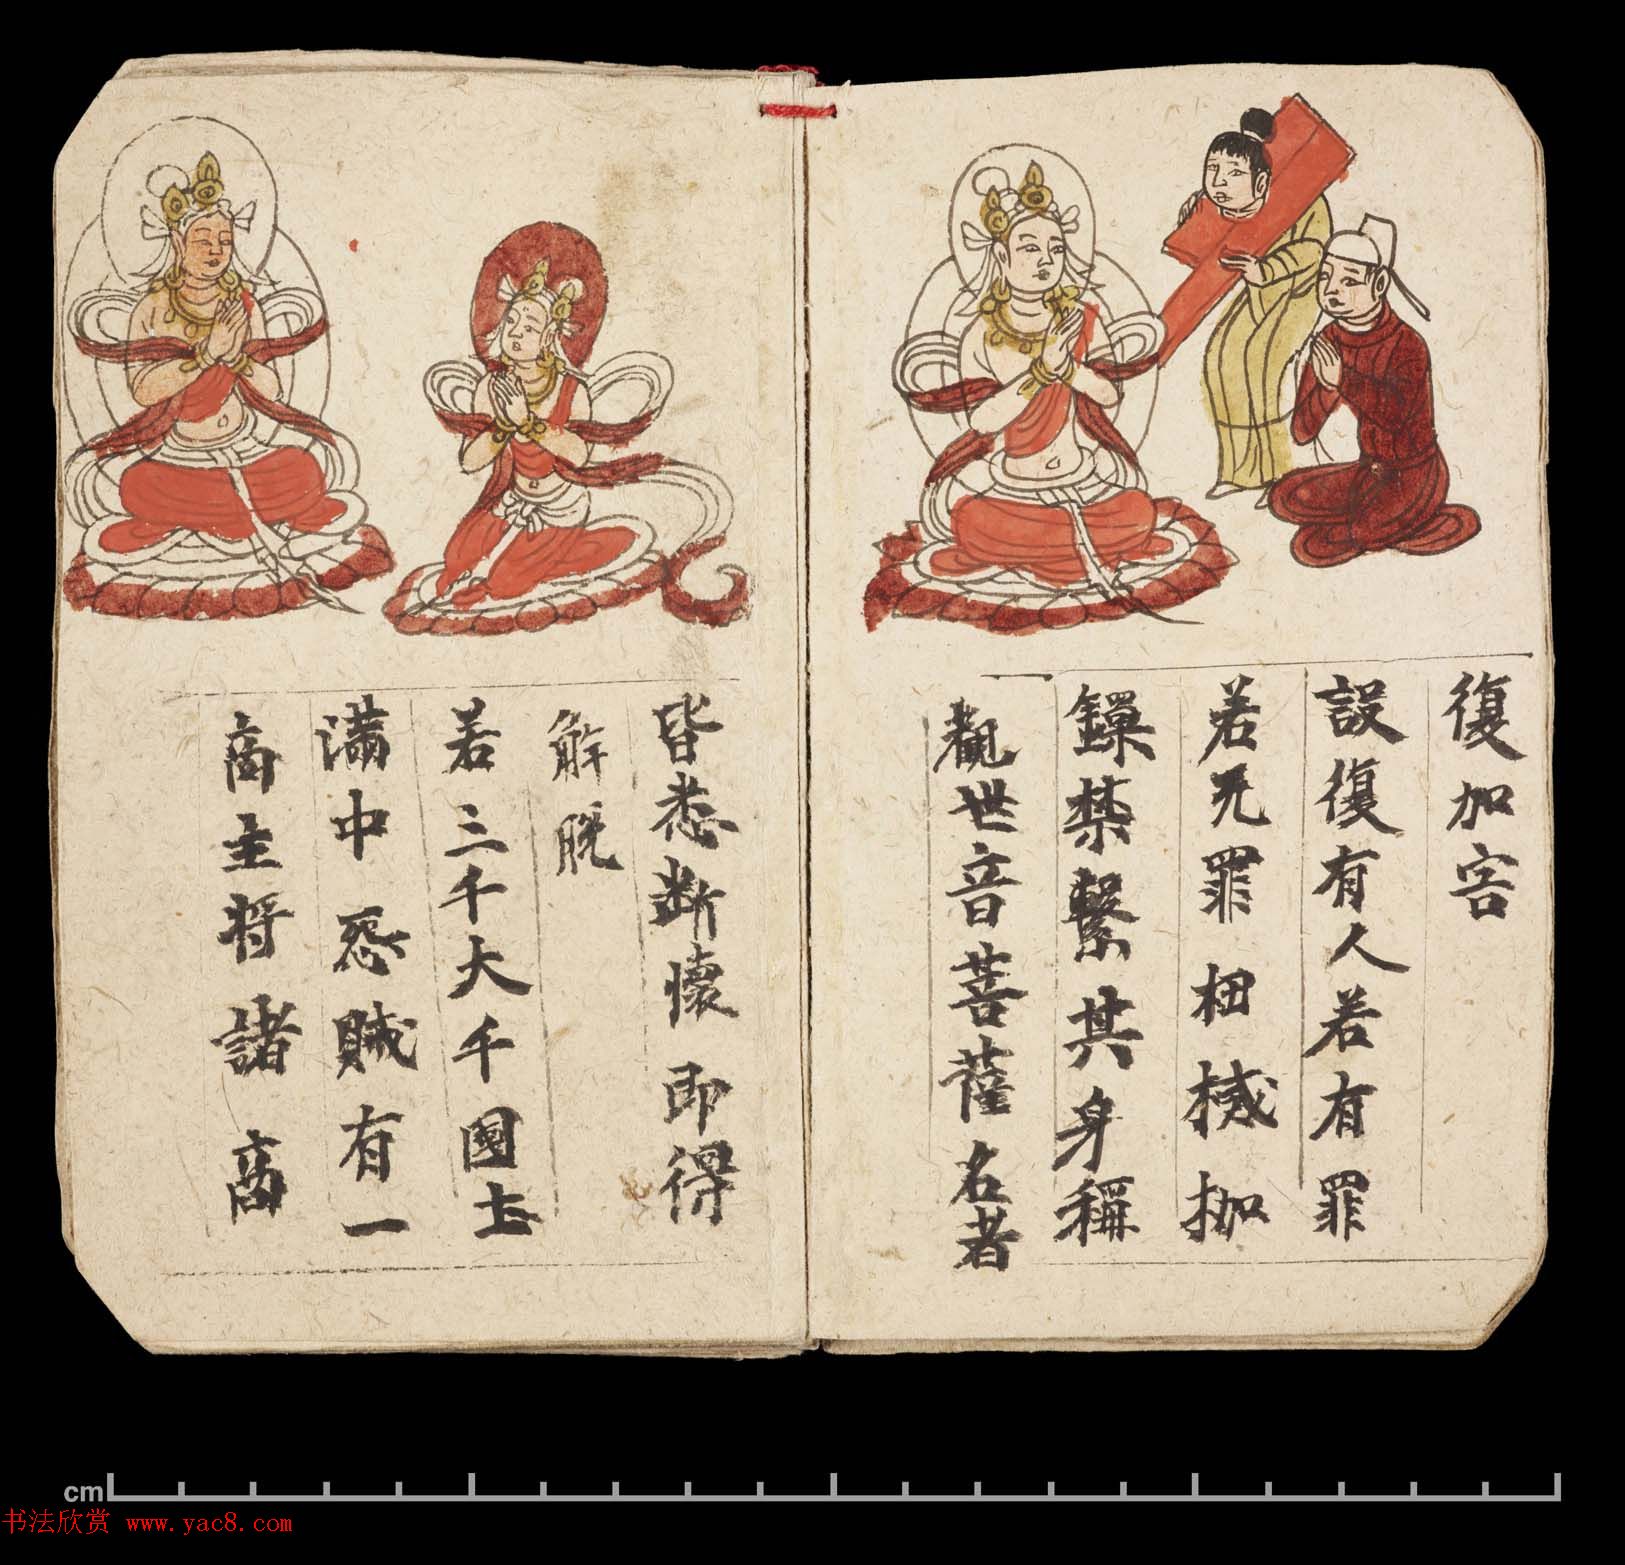 復加害
設復有人若有罪
若无罪杻械枷
鏁禁繫其身稱
觀世音菩薩名者
皆悉断懷即得
解脫
若三千大千國土
滿中怨賊有一
商主将諸商
cm
书法欣赏 www.yac8.com